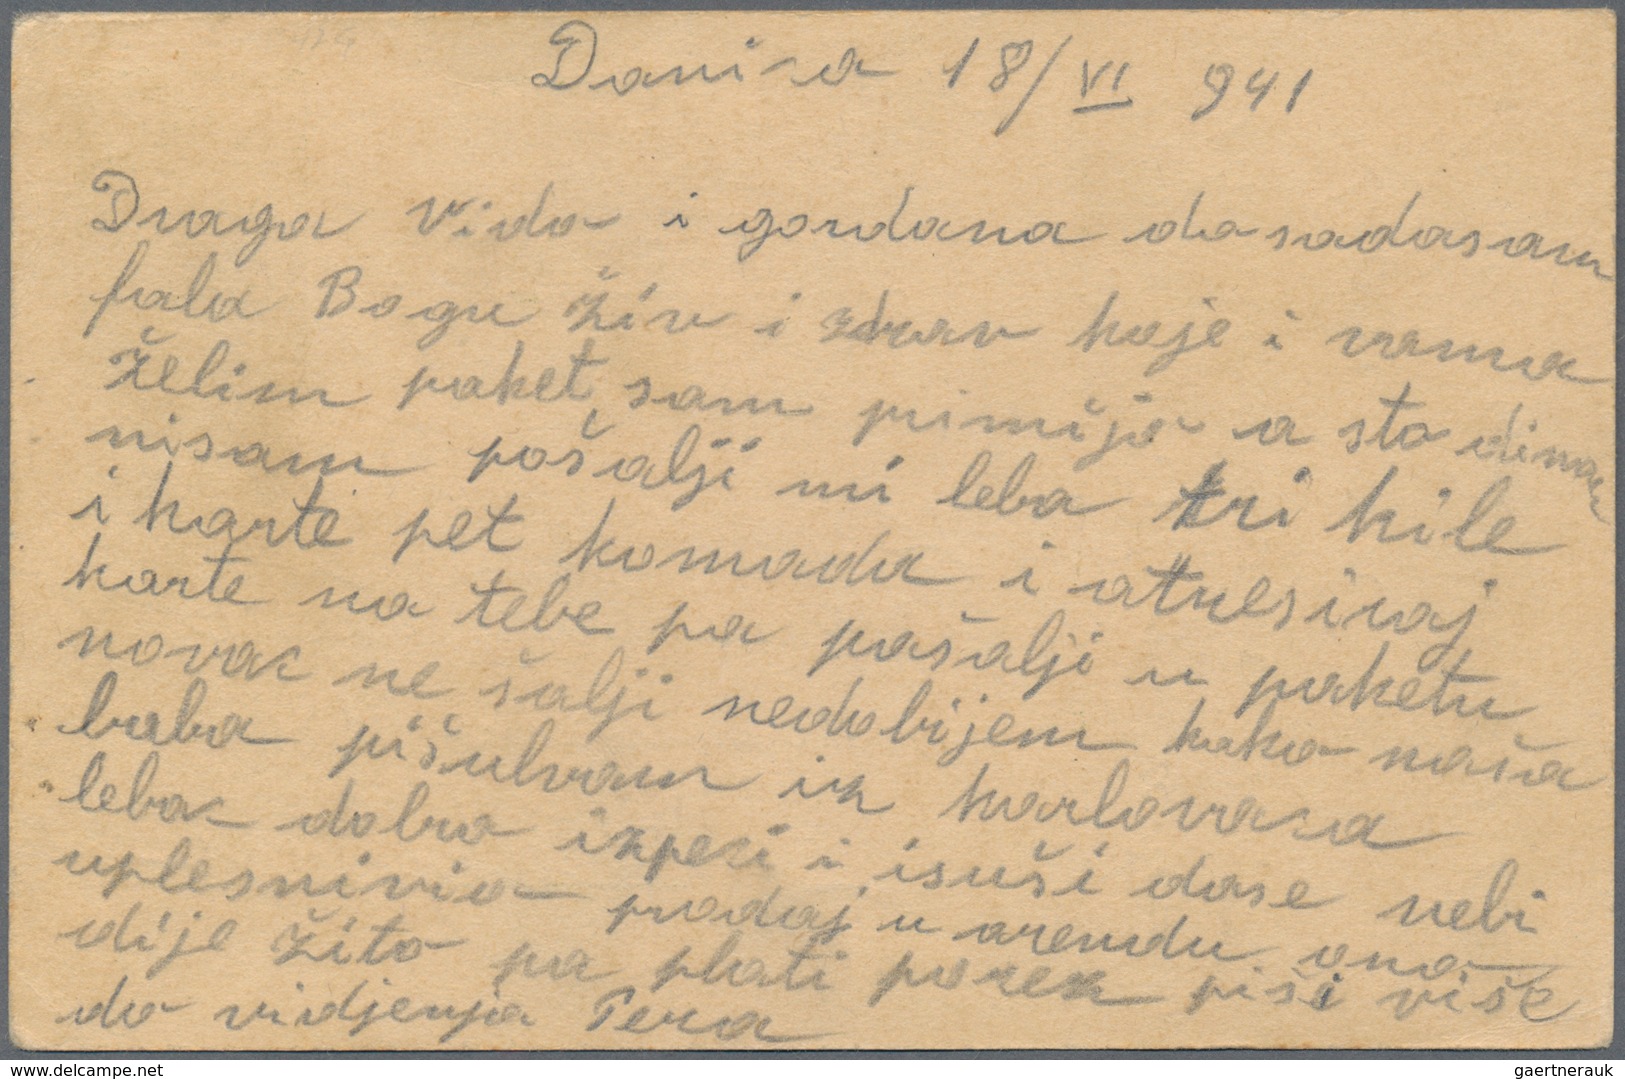 Danica 18/VI 941
Draga Vida i gordana do sadasam
fala Bogu živ i zdrav koje i vama
želim paket sam primijo a sto dinar
nisam pošalji mi leba tri kile
i karte pet komada i atresiraj
karte na tebe pa pašalji u paketu
novac ne šalji nedobijem kako naša
baba pišulvam iz karlovaca
lebac dobro izpeci i isuši dase nebi
uplesnivio prodaj u arendu ono
dije žito pa plati porez piši više
do vidjenja Pera
www.delcampe.net
gaertnerauk